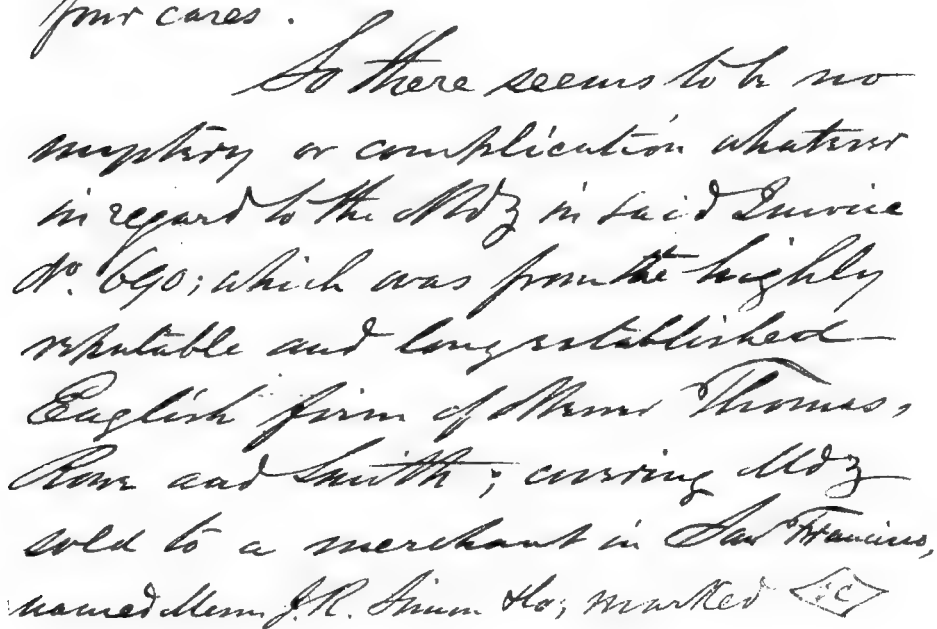 four cases.
So there seems to be no
mystery or complication whatever
in regard to the Mdz in said Invoice
No. 690; which was from the highly
reputable and long established
English firm of Messrs Thomas,
Rowe and Smith; covering Mdz
sold to a merchant in San Francisco,
named Messrs J. R. Simon & Co; marked